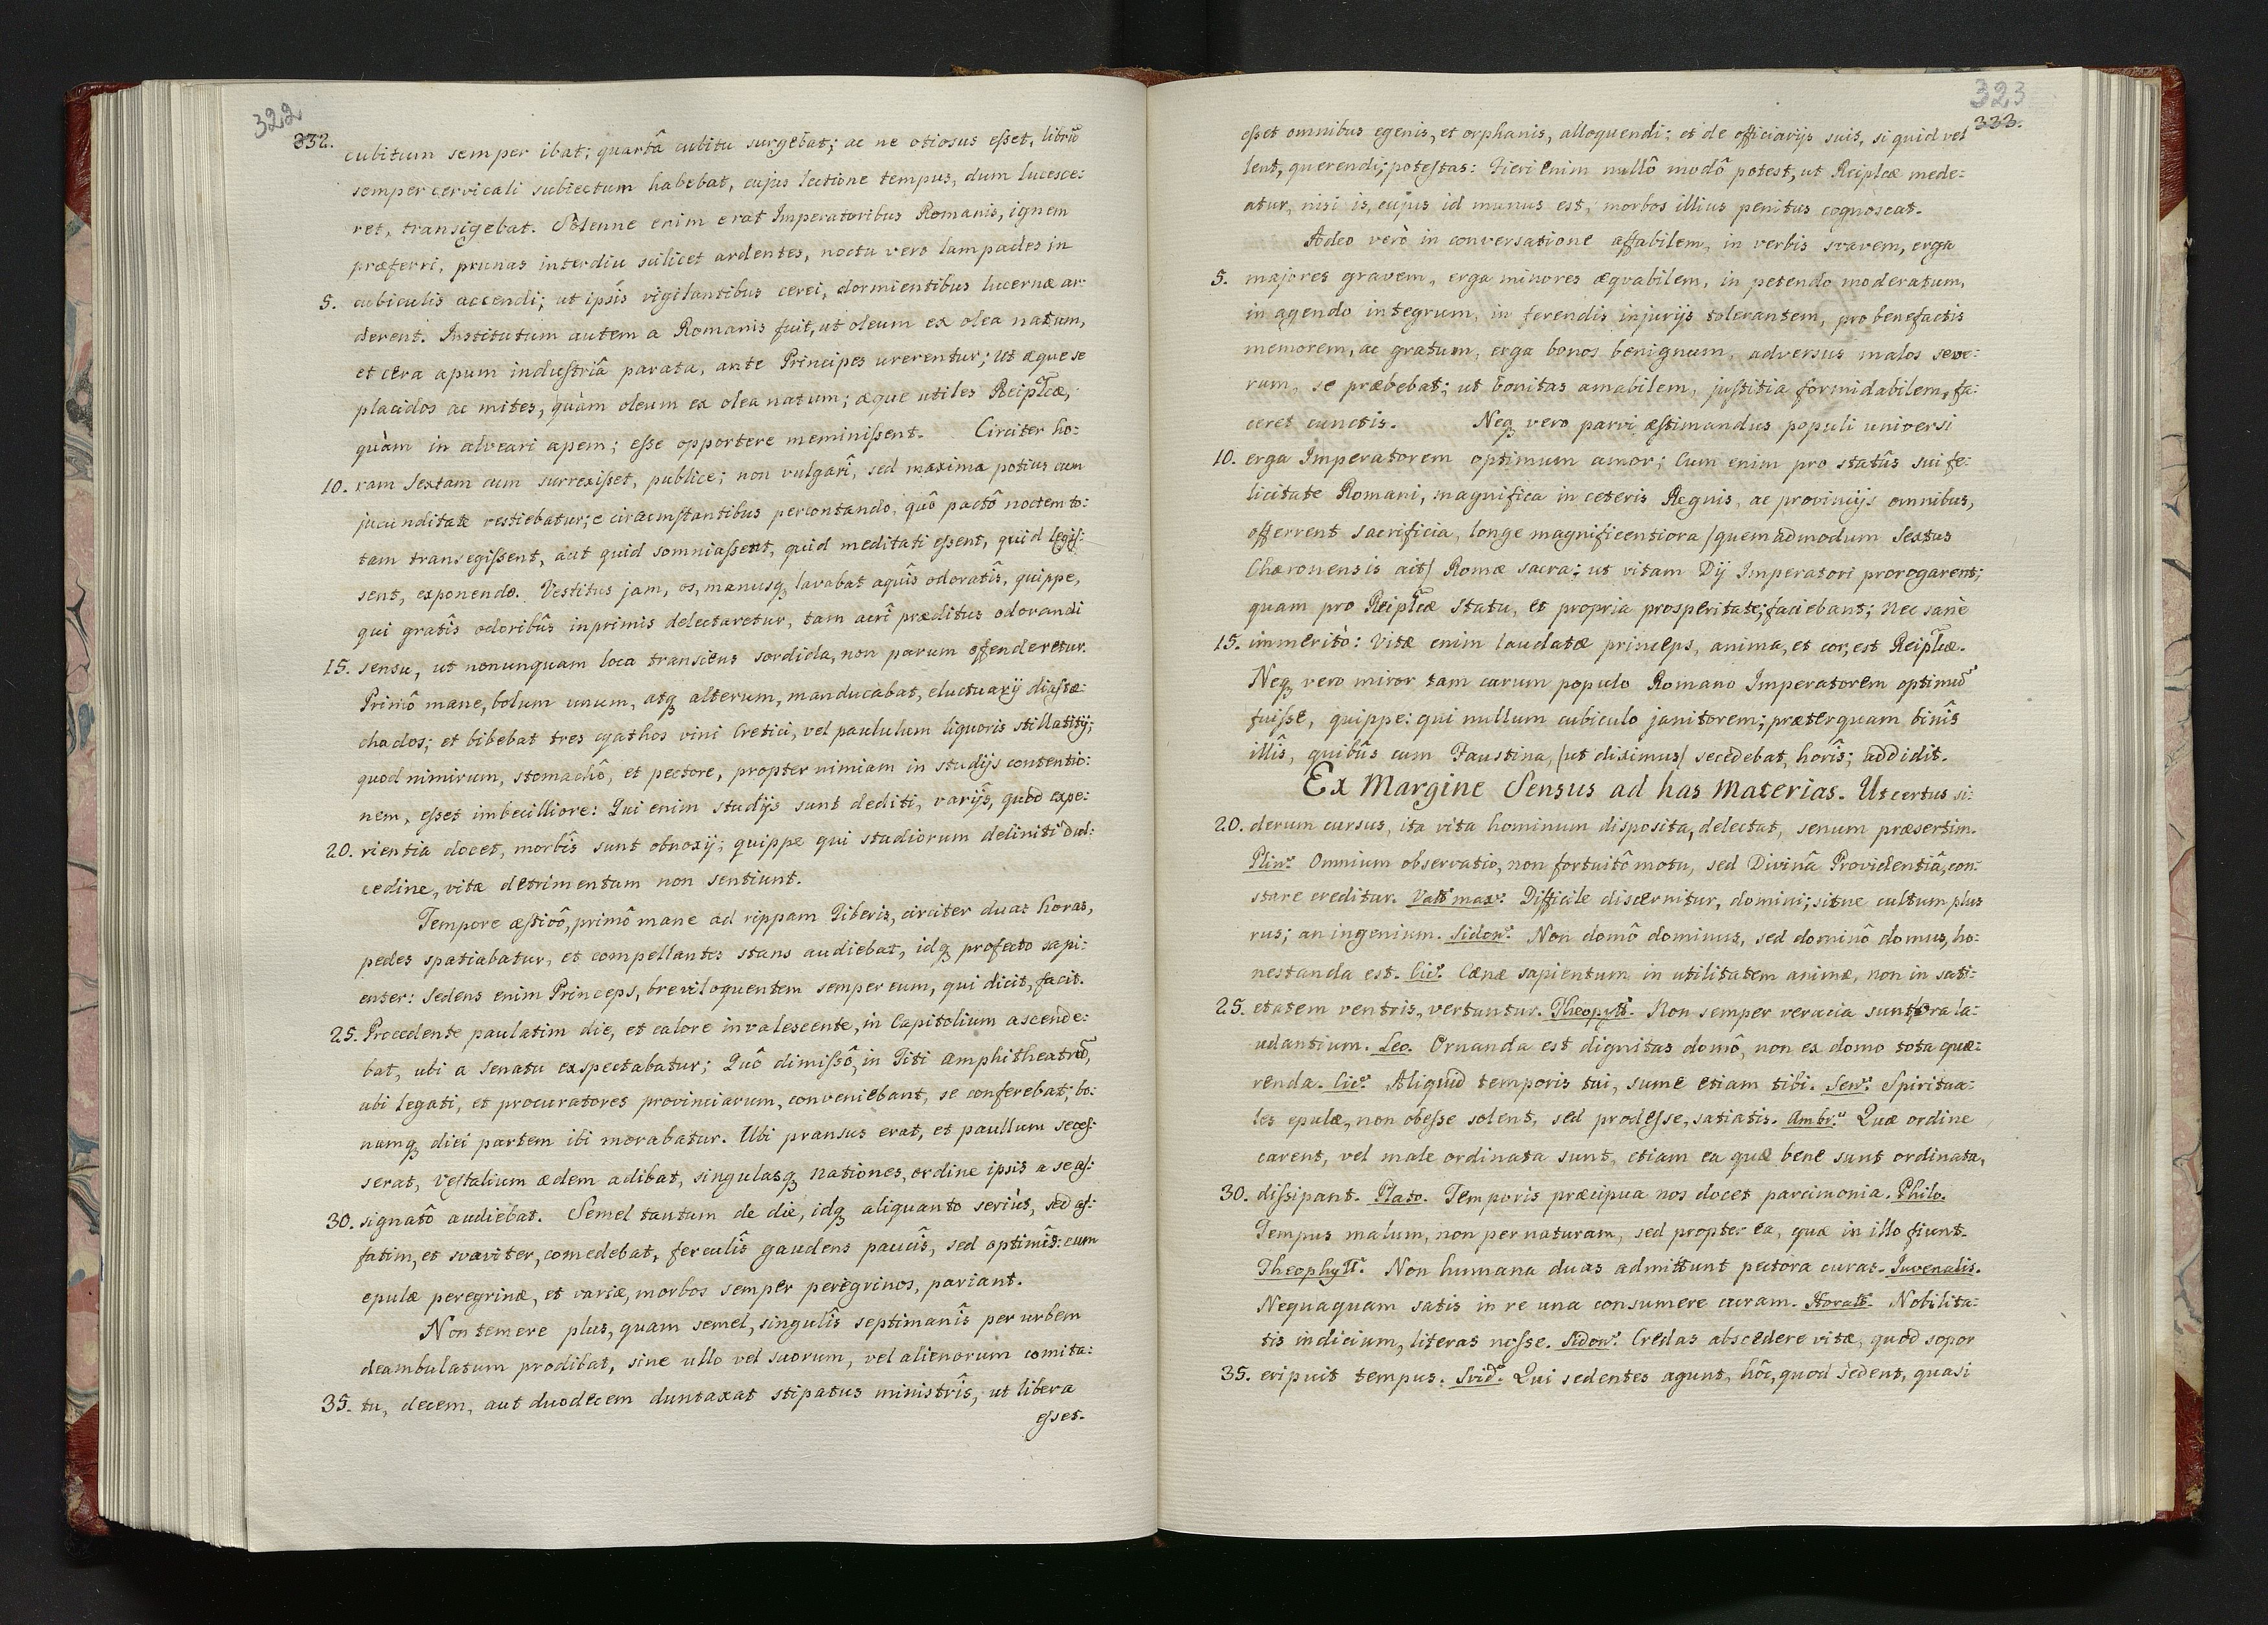 322
332.
cubitum semper ibat; quartâ cubitu surgebat; ac ne otiosus eſset, librũ
semper cervicali subiectum habebat, cujus lectione tempus, dum lucesce:
ret, transigebat. Solenne enim erat Imperatoribus Romanis, ignem
præferri, prunas interdiu scilicet ardentes, noctu vero lampades in
5. cubiculis accendi; ut ipsis vigilantibus cerei, dormientibus lucernæ ar:
derent. Institutum autem a Romanis fuit, ut oleum ex olea natum,
et cera apum induſtriâ parata, ante Principes urerentur; ut æque se
placidos ac mites, quàm oleum ex olea natum; æque utiles Reiplcæ,
quàm in alveari apem; eſse opportere meminiſsent. Circiter ho:
10. ram sextam cum surrexiſset, publice; non vulgari, sed maxima potius cum
jucunditate vestiebatur; e circumſtantibus percontando, quô pactô noctem to:
tam transegiſsent, aut quid somniaſsent, quid meditati eſsent, quid legiſ:
sent, exponendo. Vestitus jam, os, manusq; lavabat aquîs odoratîs, quippe,
qui gratîs odoribûs inprimis delectaretur, tam acrî præditus odorandi
15. sensu, ut nonunquam loca transiens sordida, non parum offenderetur.
Primô mane, bolum unum, atq; alterum, manducabat, eluctuarij diaſtæ:
chados; et bibebat tres cyathos vini Cretici, vel paululum liquoris stillatitij;
quod nimirum, stomachô, et pectore, propter nimiam in studijs contentio:
nem, eſset imbecilliore: Qui enim studijs sunt dediti, varijs, quod expe:
20. rientia docet, morbîs sunt obnoxij; quippe qui studiorum deliniti dul:
cedine, vitæ detrimentam non sentiunt.
Tempore æſtivô, primô mane ad rippam Tiberis, circiter duas horas,
pedes spatiabatur, et compellantes stans audiebat, idq; profecto sapi:
enter: sedens enim Princeps, breviloquentem semper eum, qui dicit, facit.
25. Procedente paulatim die, et calore invalescente, in Capitolium ascende:
bat, ubi a senatu exspectabatur; Quô dimiſsô, in Titi amphitheatrũ,
ubi legati, et procuratores provinciarum, conveniebant, se conferebat; bo:
namq; diei partem ibi morabatur. Ubi pransus erat, et paullum seceſ:
serat, Veſtalium ædem adibat, singulasq; nationes, ordine ipsis a se aſ:
30. signatô audiebat. Semel tantum de die, idq; aliquanto seriùs, sed aſ:
fatim, et svaviter, comedebat, ferculîs gaudens paucîs, sed optimîs: cum
epulæ peregrinæ, et variæ, morbos semper peregrinos, pariant.
Non temere plus, quam semel, singulîs septimanîs per urbem
deambulatum prodibat, sine ullo vel suorum, vel alienorum comita:
35. tu, decem, aut duodecem duntaxat stipatus ministrîs, ut libera
eſset.
323
333.
eſset omnibus egenis, et orphanis, alloquendi; et de officiarijs suis, si quid vel
lent, querendi; poteſtas: Fieri enim nullô modô potest, ut Reiplcæ mede:
atur, nisi is, cujus id munus est, morbos illius penitus cognoscat.
Adeo verò in conversatione affabilem, in verbis svavem, erga
5. majores gravem, erga minores æqvabilem, in petendo moderatum,
in agendo integrum, in ferendis injurijs tolerantem, pro benefactis
memorem, ac gratum, erga bonos benignum, adversus malos seve:
rum, se præbebat; ut bonitas amabilem, juſtitia formidabilem, fa:
ceret cunctis. Neq; vero parvi æſtimandus populi universi
10. erga Imperatorem optimum amor; Cum enim pro statûs sui fe:
licitate Romani, magnifica in ceteris Regnis, ac provincijs omnibus,
offerrent sacrificia, longe magnificentiora /quemadmodum Sextus
Chæronensis ait/ Romæ sacra: ut vitam Dij Imperatori prorogarent;
quam pro Reiplcæ statu, et propria prosperitate; faciebant; Nec sanè
15. immeritò: Vitæ enim laudatæ princeps, anima, et cor, est Reiplcæ.
Neq; vero miror tam carum populo Romano Imperatorem optimũ
fuiſse, quippe: qui nullum cubiculo janitorem; præterquam binîs
illîs, quibûs cum Faustina, /ut diximus/ secedebat, horîs; addidit.
Ex Margine Sensus ad has Materias. Ut certus si:
20. derum cursus, ita vita hominum disposita, delectat, senum præsertim.
Plin: Omnium observatio, non fortuitô motu, sed Divinâ Providentiâ, con:
stare creditur. Vall: max: Difficile discernitur, domini; sitne cultum plus
rus; an ingenium. Sidon: Non domô dominus, sed dominô domus, ho:
nestanda est. Cic: Cænæ sapientum in utilitatem animæ, non in sati:
25. etatem ventris, vertuntur. Theophll: Non semper veracia sunt ora la:
udantium. Leo. Ornanda est dignitas domô, non ex domo tota quæ:
renda. Cic: Aliquid temporis tui, sume etiam tibi. Sen: Spiritua:
les epulæ, non obeſse solent, sed prodeſse, satiatis. Ambr: Quæ ordine
carent, vel male ordinata sunt, etiam ea quæ bene sunt ordinata,
30. diſsipant. Plato. Temporis præcipua nos docet parcimonia. Philo.
Tempus malum, non per naturam, sed propter ea, quæ in illo fiunt.
Theophyll: Non humana duas admittunt pectora curas. Juvenalis.
Nequaquam satis in re una consumere curam. Horatt: Nobilita:
tis indicium, literas noſse. Sidon: Credas abscedere vitæ, quod sopor
35. eripuit tempus. Svid: Qui sedentes agunt, hôc, quod sedent, quasi